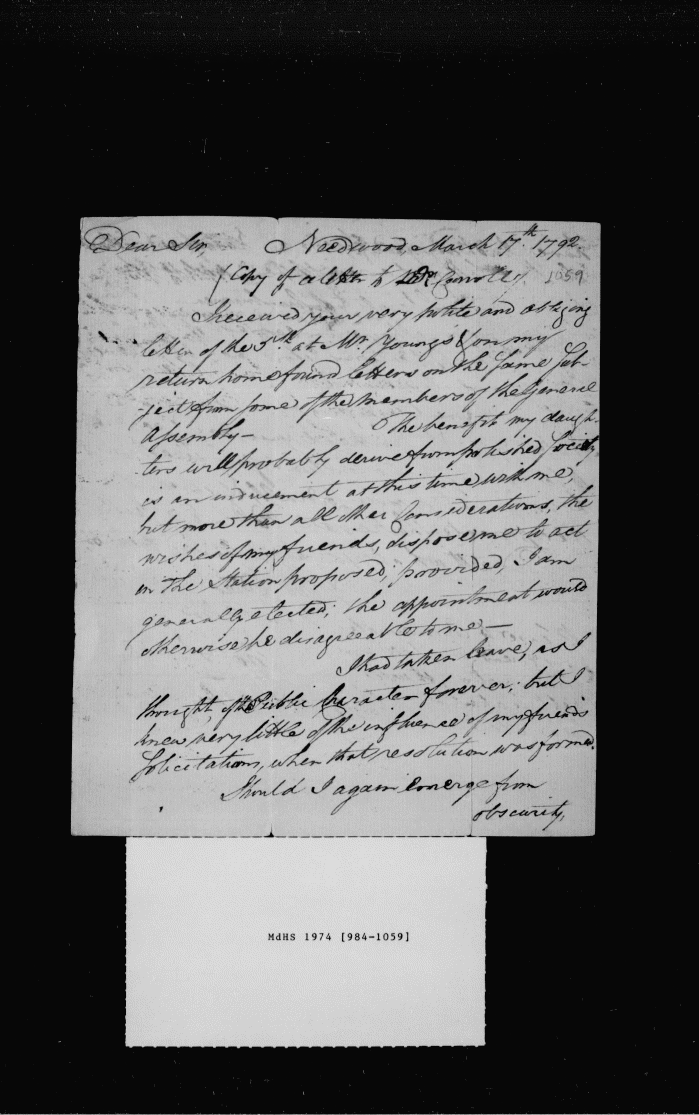 Dear Sir, Needwood, March 17th. 1792.
(Copy of a letter to Carroll) 1059
I received your very polite and obliging
letter of the 5th. at Mr. Young's & on my
return home found letters on the same sub-
ject from some of the members of the General
Assembly— The benefit my daugh-
ters will probably derive from polished society
is an inducement at this time with me,
but more than all other Considerations, the
wishes of my friends, dispose me to act
in the Station proposed, provided, I am
generally elected; the appointment would
otherwise be disagreeable to me—
I had taken leave, as I
thought, of the Public Character forever; but I
knew very little of the influence of my friends
Solicitations, when that resolution was formed.
Should I again emerge from
obscurity,
MdHS 1974 [984-1059]